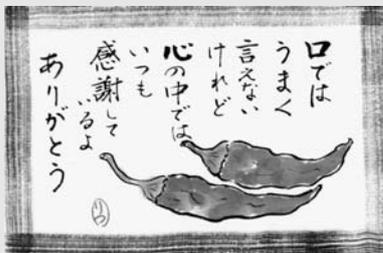 口では
うまく
言えない
けれど
心の中では
いつも
感謝して
いるよ
ありがとう